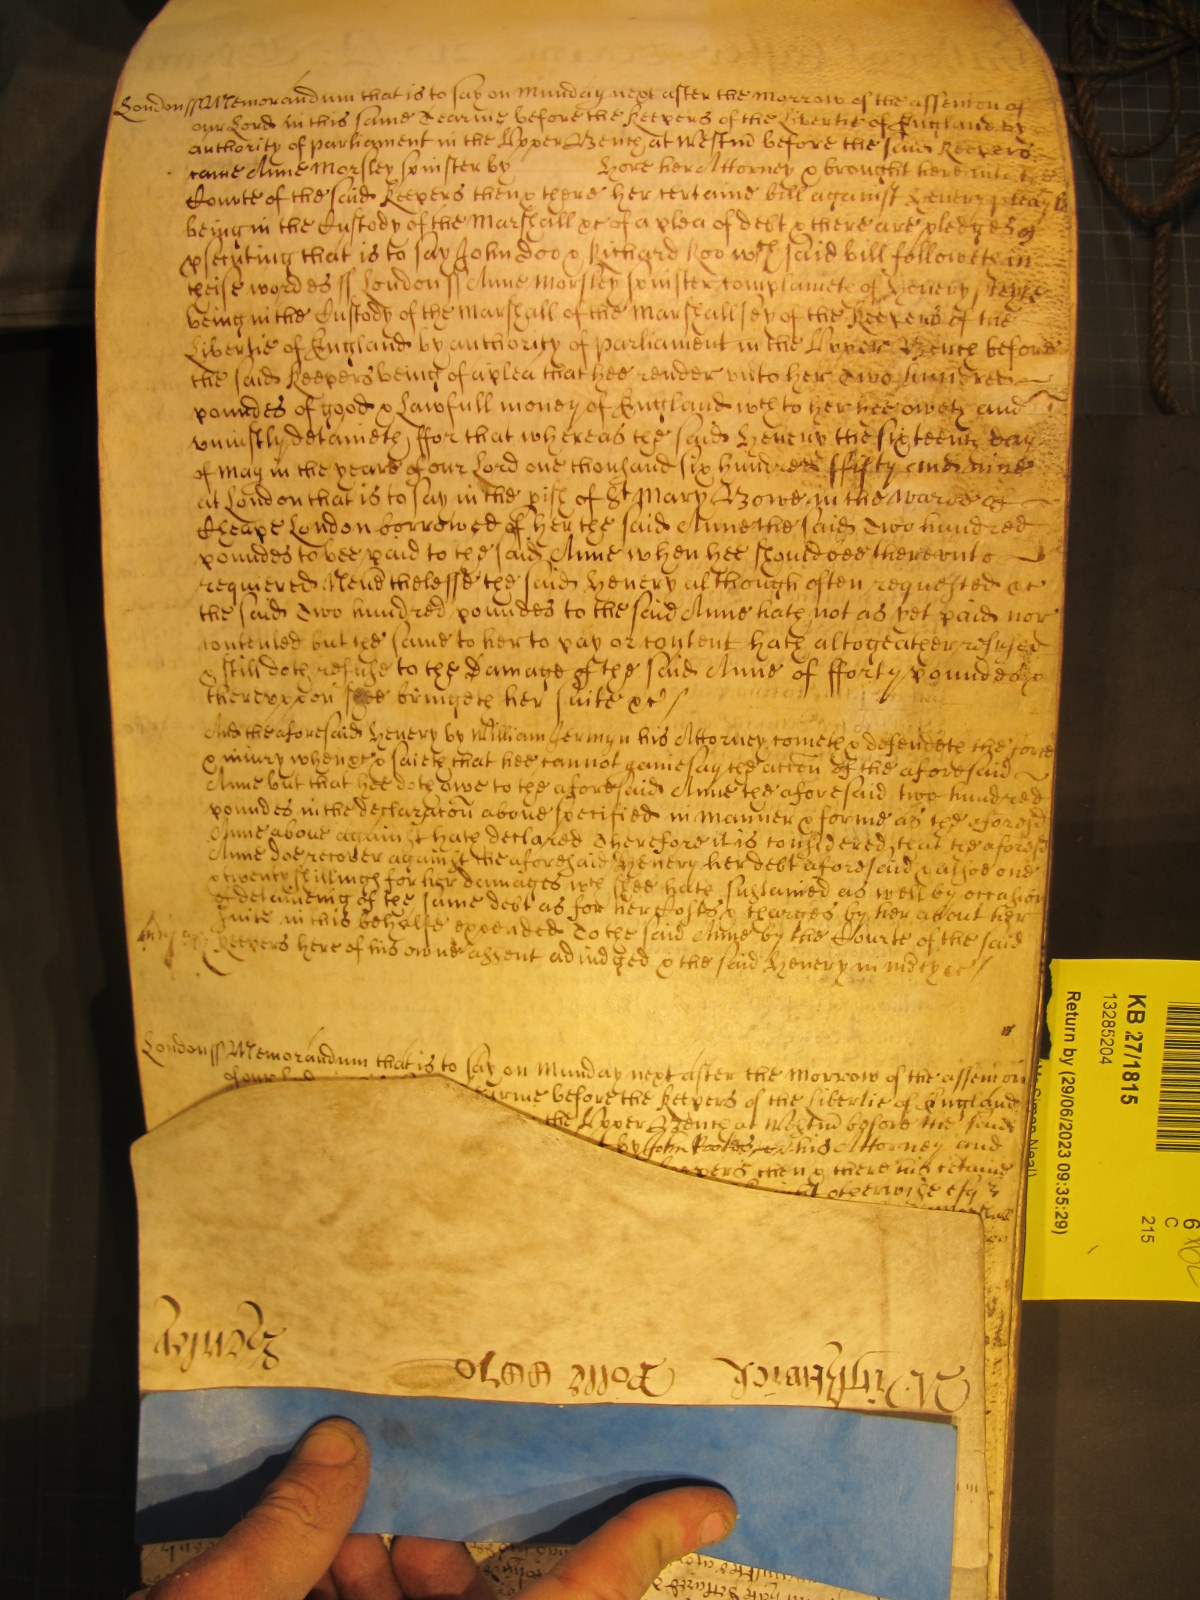 Londonss Memorandum that is to say on Munday next after the Morrow of the assention of
our Lord in this same Tearme before the Keepers of the Libertie of England by
authority of parliament in the Upper Bench at Westm before the said Keepers
came Anne Morsley spinster by Hore her Attorney & brought here into the
Courte of the said Keepers then & there her certaine bill against Henery
being in the Custody of the Marshall &c of a plea of debt & there are pledges of
psecuting that is to say John Doo & Richard Roo wch said bill followeth in
theise wordes ss Londonss Anne Morsley spinster complaineth of Henery
being in the Custody of the Marshall of the Marshallsey of the Keepers of the
Libertie of England by authority of parliament in the Upper Bench before
the said Keepers being of a plea that hee render unto her Two hundred
poundes of good & Lawfull money of England wch to her hee oweth and
uniustly detaineth ffor that whereas the said Henery the sixteenth day
of May in the yeare of our Lord one thousand six hundred ffifty and nine
at London that is to say in the pish of St Mary Bowe in the Warde of
Cheape London borrowed of her the said Anne the said Two hundred
poundes to bee paid to the said Anne when hee should bee thereunto
requiered Neverthelesse the said Henery although often requested &c
the said Two hundred poundes to the said Anne hath not as yet paid nor
contented but the same to her to pay or content hath altogeather refused
& still doth refuse to the Damage of the said Anne of fforty poundes &
thereuppon shee bringeth her suite &c
And the aforesaid Henery by William Jermyn his Attorney cometh & defendeth the force
& iniury when &c & saieth that hee cannot gainesay the accon of the aforesaid
Anne but that hee doth owe to the aforesaid Anne the aforesaid two hundred
poundes in the declaracon above specified in manner & forme as the aforesd
Anne above against hath declared Therefore it is considered that the aforesd
Anne doe recover against the aforesaid Henery her debt aforesaid & alsoe one
& twenty shillings for her damages wch shee hath sustained as well by occasion
of detaineing of the same debt as for her Costs & charges by her about her
suite in this behalfe expended To the said Anne by the Courte of the said
Keepers here of his owne assent adiudged & the said Henery in mcy &c
Londonss Memorandum that is to say on Munday next after the Morrow of the assention
of our
Tearme before the Keepers of the Libertie of England
the Upper Bench at Westm before the said
by John his Attorney and
Keepers then & there his certaine
otherwise
Rolle
KB 27/1815
13285204
Return by (29/06/2023 09:35:29)
Mr Simon Neal)
6
C
215